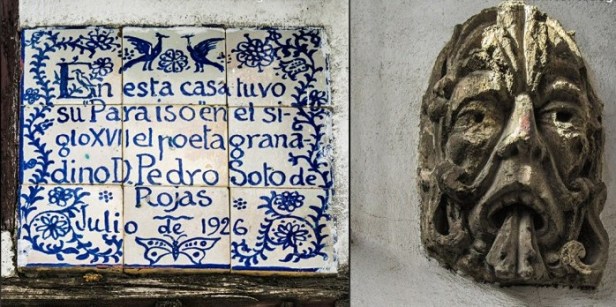 En esta casa tuvo
su Paraiso en el si-
glo XVII el poeta grana-
dino D. Pedro Soto de
Rojas
Julio de 1926